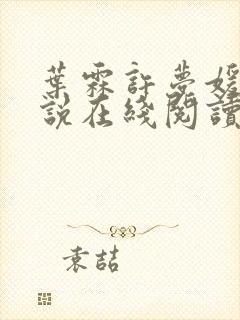 葉霖許夢媛
說在綫閱讀
袁喆